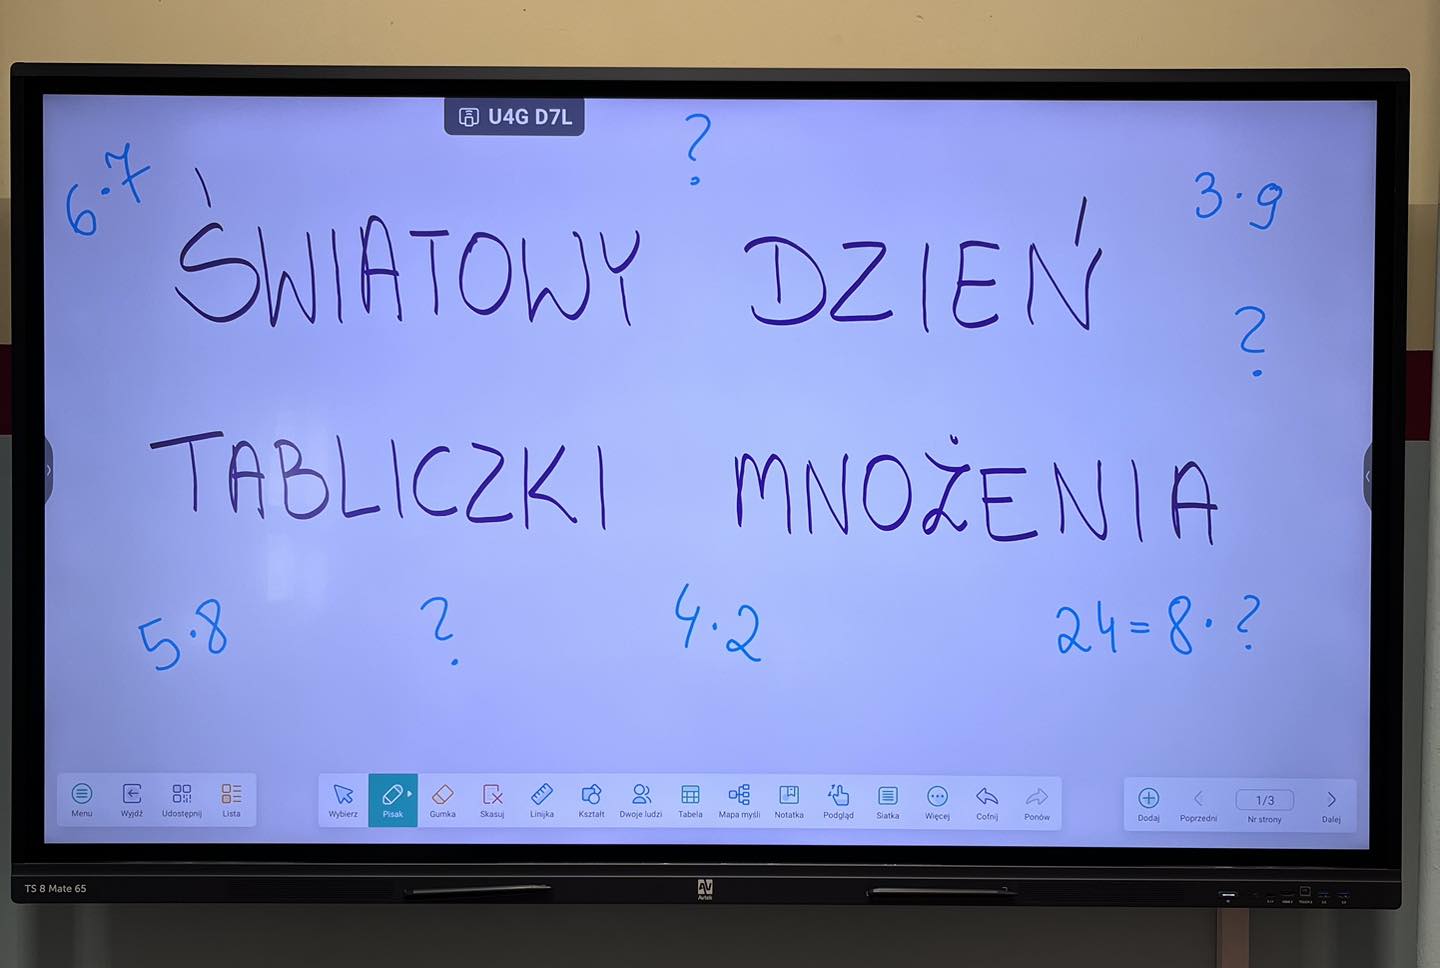 U4G D7L
?
6·7
3·9
ŚWIATOWY DZIEŃ
?
TABLICZKI MNOŻENIA
5·8
?
4·2
24=8·?
Menu Wyjdź Udostępnij Lista
Wybierz Pisak Gumka Skasuj Linijka Kształt Dwoje ludzi Tabela Mapa myśli Notatka Podgląd Siatka Więcej Cofnij Ponów
Dodaj Poprzedni 1/3 Nr strony Dalej
TS 8 Mate 65
AV
Avtek